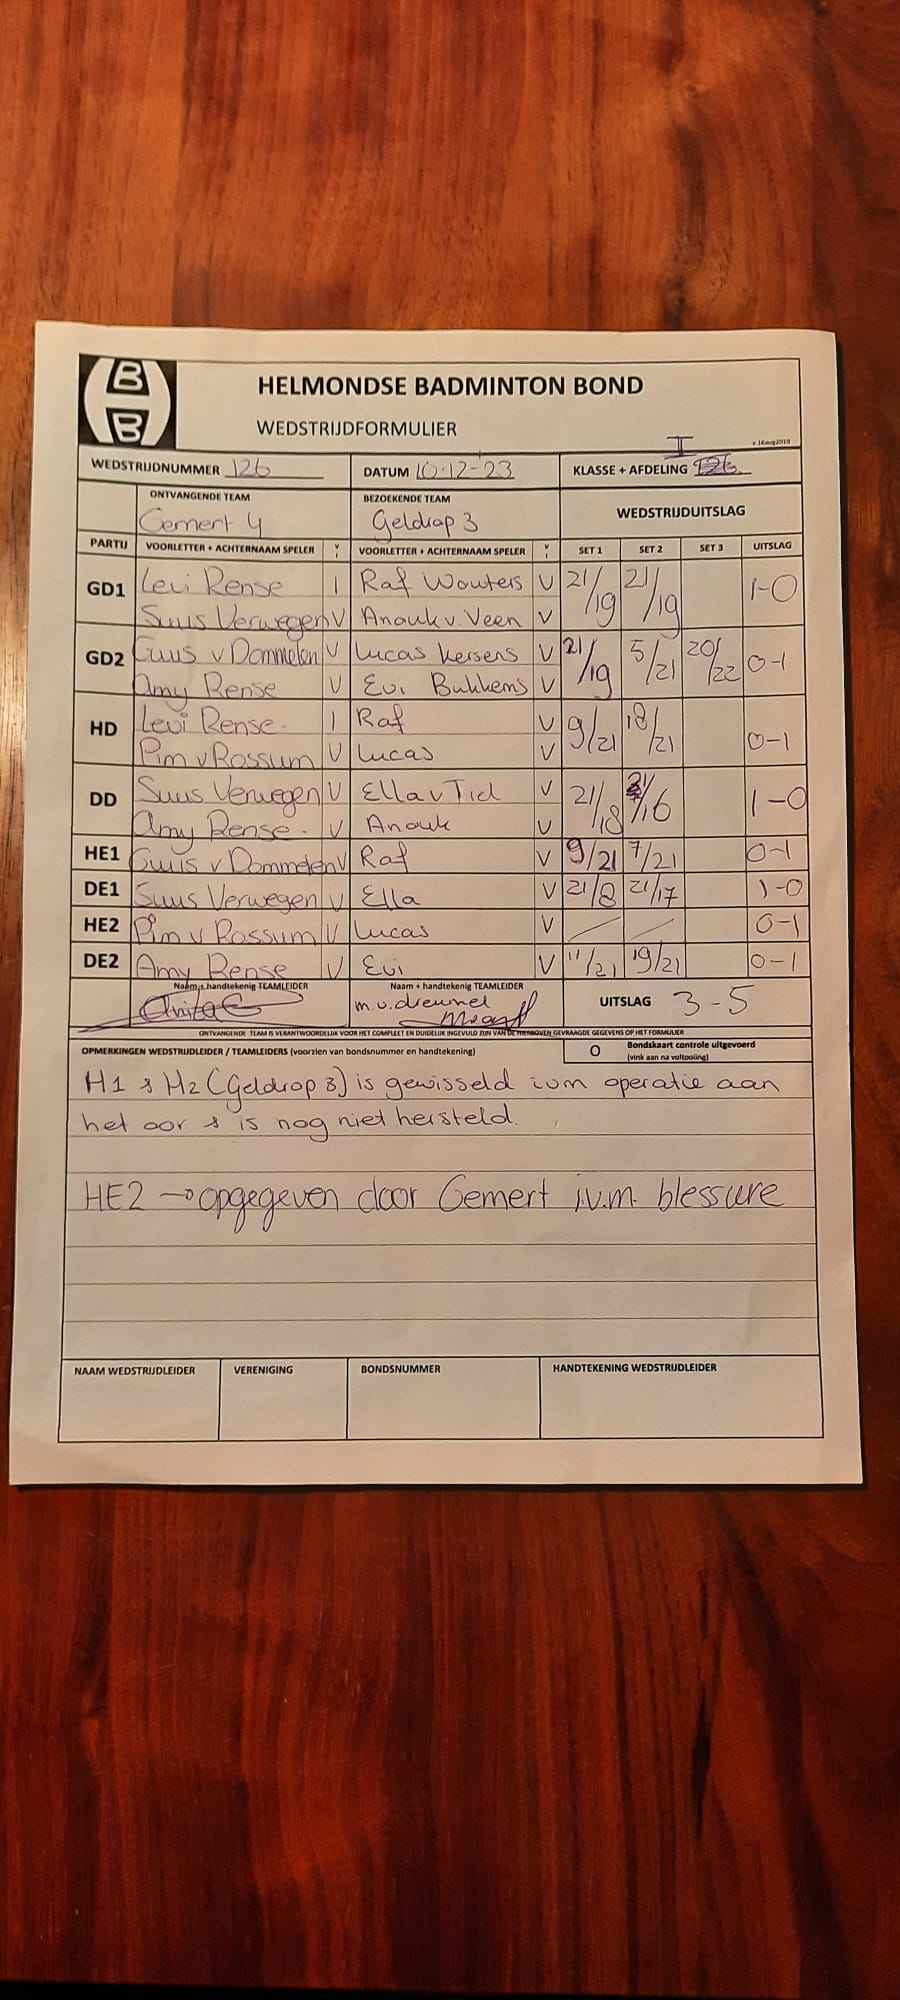 HELMONDSE BADMINTON BOND
WEDSTRIJDFORMULIER
v.16aug2010
WEDSTRIJDNUMMER 126 DATUM 10-12-23 KLASSE + AFDELING I
ONTVANGENDE TEAM BEZOEKENDE TEAM WEDSTRIJDUITSLAG
Gemert 4 Geldrop 3
PARTIJ VOORLETTER + ACHTERNAAM SPELER V I VOORLETTER + ACHTERNAAM SPELER V I SET 1 SET 2 SET 3 UITSLAG
GD1 Levi Rense I Raf Wouters V 21/19 21/19 1-0
Suus Verwegen V Anouk v. Veen V
GD2 Guus v Dommelen V Lucas Kersens V 21/19 5/21 20/22 0-1
Amy Rense V Evi Bukkems V
HD Levi Rense. I Raf V 9/21 18/21 0-1
Pim v Rossum V Lucas V
DD Suus Verwegen V Ella v Tiel V 21/18 21/16 1-0
Amy Rense. V Anouk V
HE1 Guus v Dommelen V Raf V 9/21 7/21 0-1
DE1 Suus Verwegen V Ella V 21/8 21/17 1-0
HE2 Pim v Rossum V Lucas V / / 0-1
DE2 Amy Rense V Evi V 11/21 19/21 0-1
Naam + handtekening TEAMLEIDER Naam + handtekening TEAMLEIDER
m.v.dreumel UITSLAG 3-5
ONTVANGENDE TEAM IS VERANTWOORDELIJK VOOR HET COMPLEET EN DUIDELIJK INGEVULD ZIJN VAN DE HIERBOVEN GEVRAAGDE GEGEVENS OP HET FORMULIER
OPMERKINGEN WEDSTRIJDLEIDER / TEAMLEIDERS (voorzien van bondsnummer en handtekening) O Bondskaart controle uitgevoerd
(vink aan na voltooiing)
H1 & H2 (Geldrop 3) is gewisseld ivm operatie aan
het oor & is nog niet hersteld.
HE2 → opgegeven door Gemert i.v.m. blessure
NAAM WEDSTRIJDLEIDER VERENIGING BONDSNUMMER HANDTEKENING WEDSTRIJDLEIDER